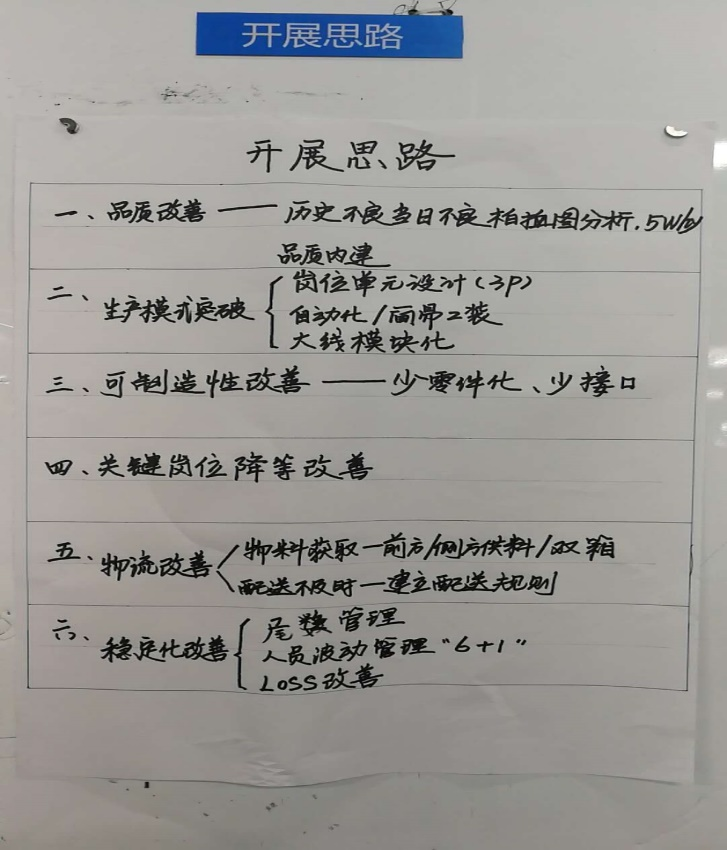 开展思路
开展思路
一、品质改善 —— 历史不良当日不良柏拉图分析.5Why
品质内建
二、生产模式突破
岗位单元设计(3P)
自动化/简易工装
大线模块化
三、可制造性改善 —— 少零件化、少接口
四、关键岗位降等改善
五、物流改善
物料获取—前方/侧方供料/双箱
配送不及时—建立配送规则
六、稳定化改善
尾数管理
人员波动管理"6+1"
LOSS改善